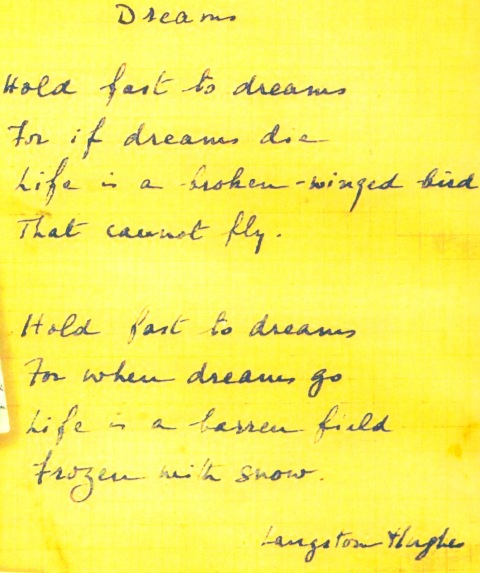 Dreams
Hold fast to dreams
For if dreams die
Life is a broken-winged bird
That cannot fly.
Hold fast to dreams
For when dreams go
Life is a barren field
Frozen with snow.
Langston Hughes